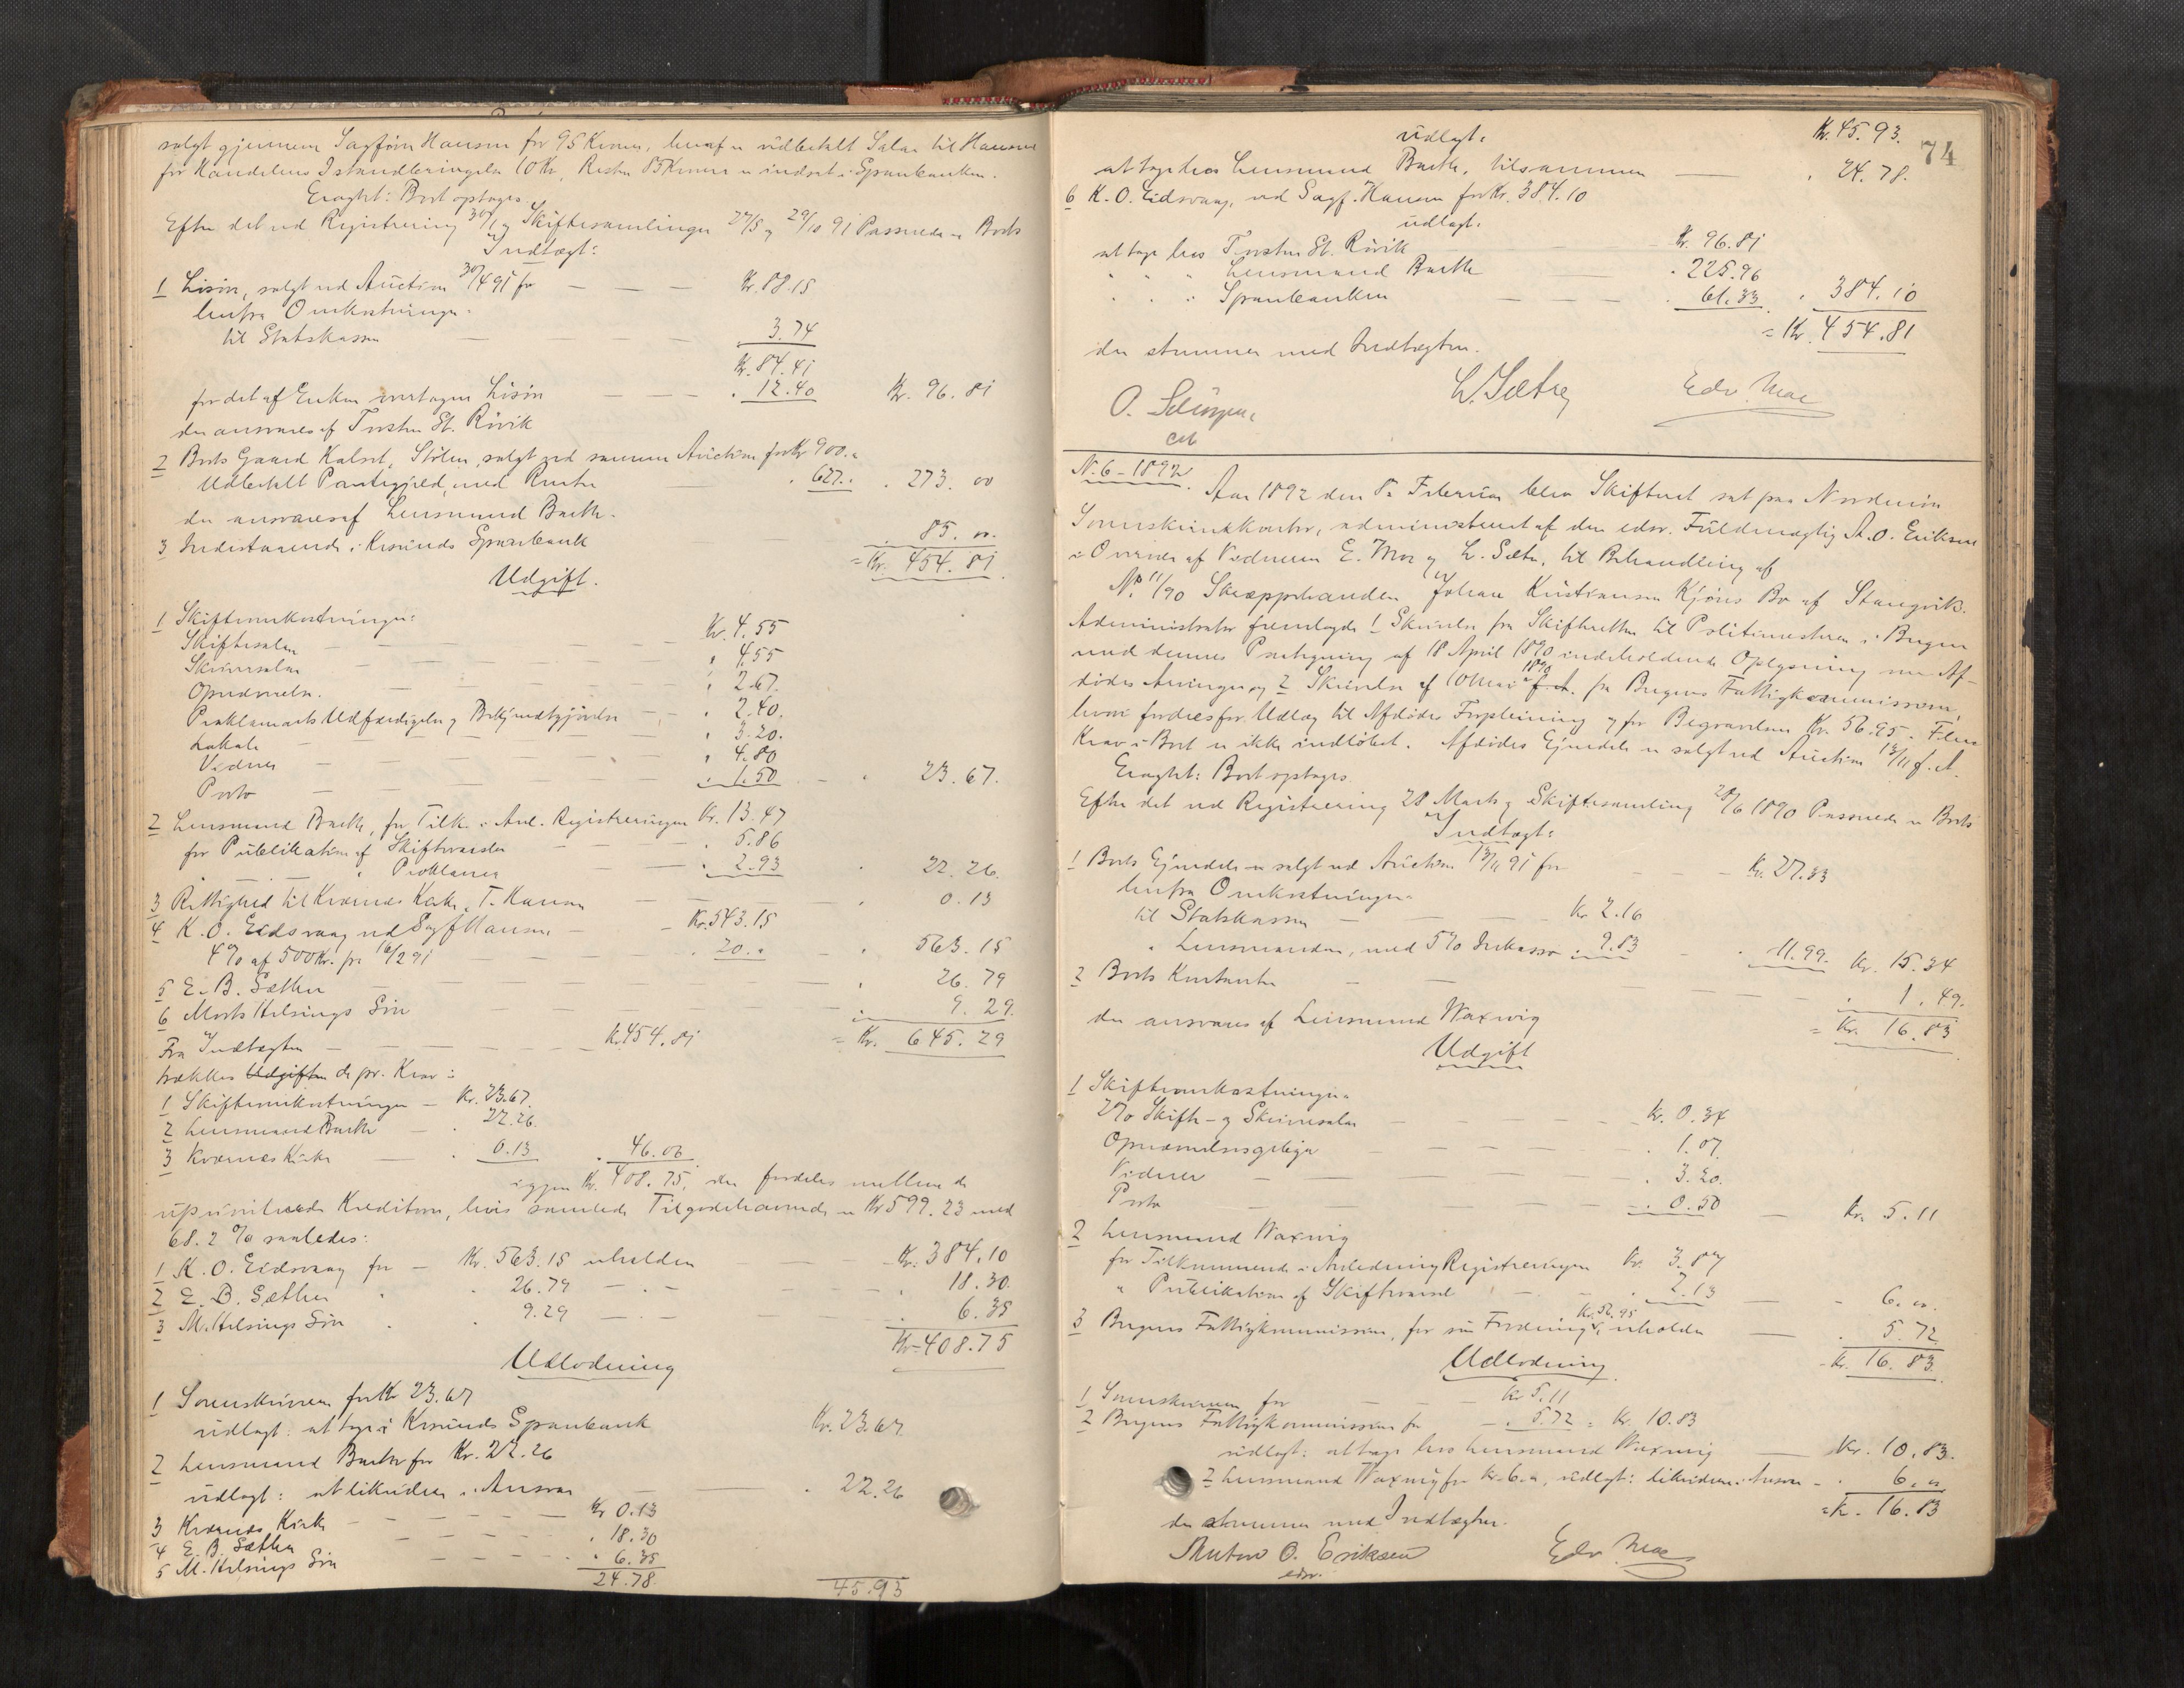 solgt gjennem Sagfører Hansen for 95 Kroner, heraf er udbetalt Salær til Hansen
for Handelens Istandbringelse 10 Kr, Resten 85 Kroner er indsat i Sparebanken.
Eragtet: Boet optages.
Efter det ved Registrering 30/1 og Skiftesamlinger 27/5 og 29/10 91 Passerede er Boets
Indtægt:
1 Løsøre, solgt ved Auction 30/4 91 for — — — Kr. 88.15
herfra Omkostninger:
til Statskassen — — — 3.74
Kr. 84.41
for det af Enken overtagne Løsøre — — — . 12.40 Kr. 96.81
der ansvares af Torsten St. Rövik
2 Boets Gaard Kalset, Stölen, solgt ved samme Auction for Kr 900.
Udbetalt Pantegjæld, med Renter — . 627. . 273.00
der ansvares af Lensmand Barth.
3 Indestaaende i Krsunds Sparebank — . 85.00
= Kr. 454.81
Udgift.
1 Skifteomkostninger:
Skiftesalær — Kr. 4.55
Skriversalær — . 4.55
Opnævnelse. — . 2.67.
Proklamaets Udfærdigelse og Bekjendtgjörelse — . 2.40.
Lokale — . 3.20.
Vidner — . 4.80
Porto — . 1.50 — . 23.67.
2 Lensmand Barth, for Tilk. i Anl. Registreringen Kr. 13.47
for Publikation af Skiftevarsler — . 5.86
" Proklama — . 2.93 . 22.26.
3 Rettighed til Kværnes Kirke, T. Hansen — . 0.13
4 K. O. Eidsvaag ved Sagf Hansen — Kr. 543.15
4% af 500 Kr. fra 16/2 91 — . 20. — . 563.15
5 E. B. Sæther — . 26.79
6 Morts Helsings Søn — . 9.29.
= Kr. 645.29
Fra Indtægten — Kr. 454.81
trækkes Udgiften de pr. Krav:
1 Skifteomkostninger — Kr. 23.67.
2 Lensmand Barth — . 22.26.
3 Kværnes Kirke — . 0.13 . 46.06
igjen Kr. 408.75, der fordeles mellem de
upriviterede Kreditorer, hvis samlede Tilgodehavende er Kr 599.23 med
68.2 % saaledes:
1 K. O. Eidsvaag for — Kr. 563.15 erholder — Kr. 384.10
2 E. B. Sæther " . 26.79 — . 18.30.
3 M. Helsings Søn . . 9.29 — . 6.35
Kr 408.75
Udlodning
1 Sorenskriveren for Kr 23.67
udlagt: at tage i Krsunds Sparebank Kr. 23.67.
2 Lensmand Barth for Kr. 22.26
udlagt: at likvidere i Ansvar — . 22.26
3 Kværnes Kirke — Kr 0.13
4 E. B. Sæther — . 18.30
5 M. Helsings Søn — . 6.35
24.78. 45.93
74
udlagt: Kr. 45.93.
at tage hos Lensmand Barth, tilsammen — . 24.78.
6 K. O. Eidsvaag, ved Sagf. Hansen for Kr. 384.10
udlagt:
at tage hos Torsten St. Rövik — Kr. 96.81
" " " Lensmand Barth — . 225.96
" " " Sparebanken — . 61.33 . 384.10
= Kr. 454.81
der stemmer med Indtægten.
L. Sætre Edv. Moe
O.
cst
N. 6 - 1892.
Aar 1892 den 8de Februar blev Skifteret sat paa Nordmøre
Sorenskriverkontor, administreret af den edsv. Fuldmægtig A. O. Eriksen
i Overvær af Vidnerne E. Moe og L. Sætre, til Behandling af
No. 11/90 Skræpphandler Johan Kristiansen Kjöns Bo af Stangvik.
Administrator fremlagde 1 Skrivelse fra Skifteretten til Politimesteren i Bergen
med dennes Paategning af 18 April 1890 indeholdende Oplysning om Af-
dødes Arvinger og 2 Skrivelse af 10 Mai 1890 f. A. fra Bergens Fattigkommission,
hvori fordres for Udlæg til Afdödes Forpleining og for Begravelsen Kr. 56.95. Flere
Krav i Boet er ikke indlöbet. Afdödes Ejendele er solgt ved Auction 13/11 f. A.
Eragtet: Boet optages.
Efter det ved Registrering 28 Marts og Skiftesamling 28/6 1890 Passerede er Boets
Indtægt:
1 Boets Ejendele er solgt ved Auction 13/11 91 for — — Kr. 27.33
herfra Omkostninger:
til Statskassen — Kr 2.16
" Lensmanden, med 5% Inkasso . 9.83 — . 11.99. Kr. 15.34
2 Boets Kontanter — . 1.49.
der ansvares af Lensmand Waxvig = Kr. 16.83
Udgift
1 Skifteomkostninger:
2% Skifte- og Skriversalær — Kr. 0.34
Opnævnelsesgebyr — . 1.07.
Vidner — . 3.20.
Porto — . 0.50 — Kr. 5.11
2 Lensmand Waxvig
for Tilkommende i Anledning Registreringen Kr. 3.87
" Publikation af Skiftevarsel — . 2.13 — . 6.00.
3 Bergens Fattigkommission, for sin Fordring Kr. 56.95 erholder — . 5.72
Kr. 16.83.
Udlodning
1 Sorenskriveren for — Kr 5.11
2 Bergens Fattigkommission for — . 5.72 = Kr. 10.83
udlagt: at tage hos Lensmand Waxvig — Kr. 10.83.
2 Lensmand Waxvig for Kr. 6.00, udlagt: likvidere i Ansvar — . 6.00
= Kr. 16.83
der stemmer med Indtægten.
Anton O. Eriksen Edv. Moe
edsv.